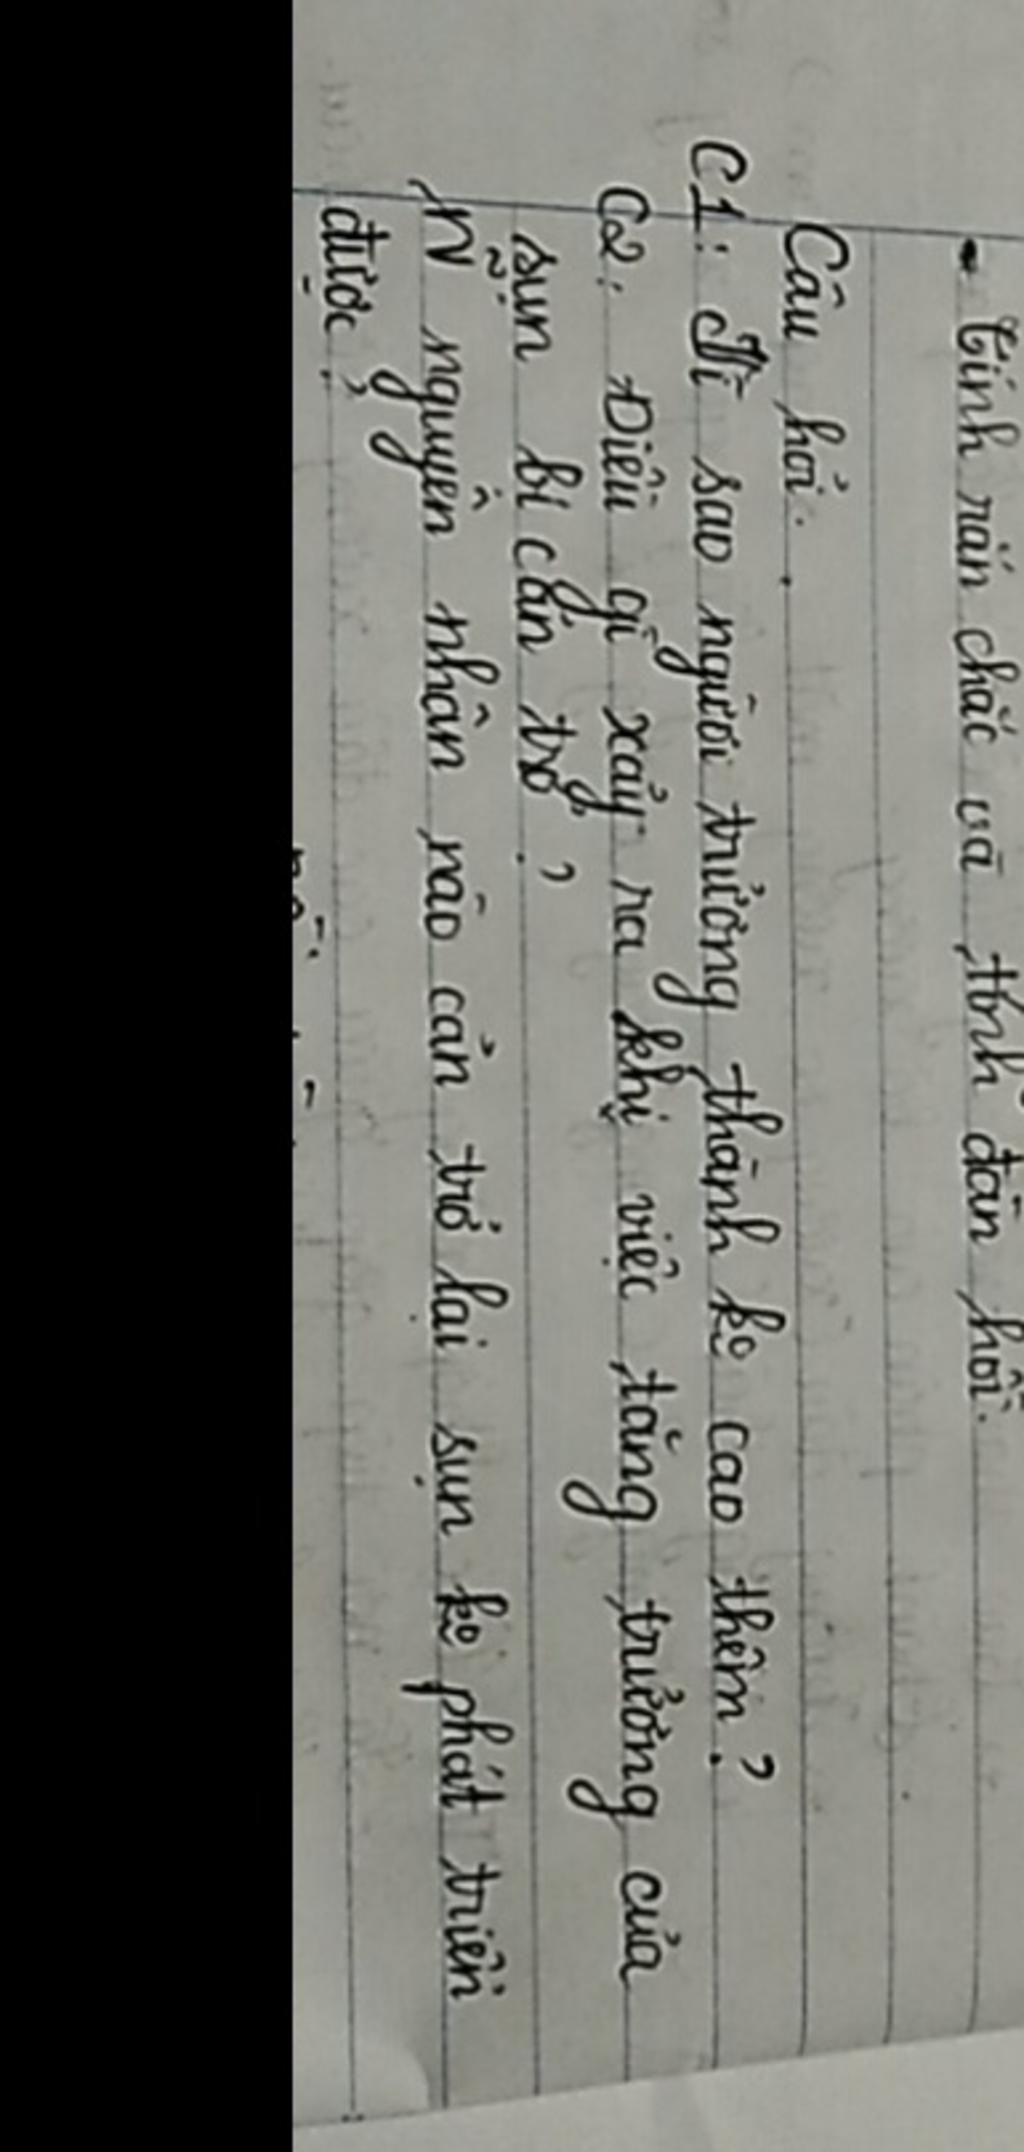 - Tính rắn chắc và tính đàn hồi.
Câu hỏi.
C1: Vì sao người trưởng thành ko cao thêm?
C2: Điều gì xảy ra khi việc tăng trưởng của
sụn bị cản trở?
N nguyên nhân nào cản trở lại sụn ko phát triển
được?